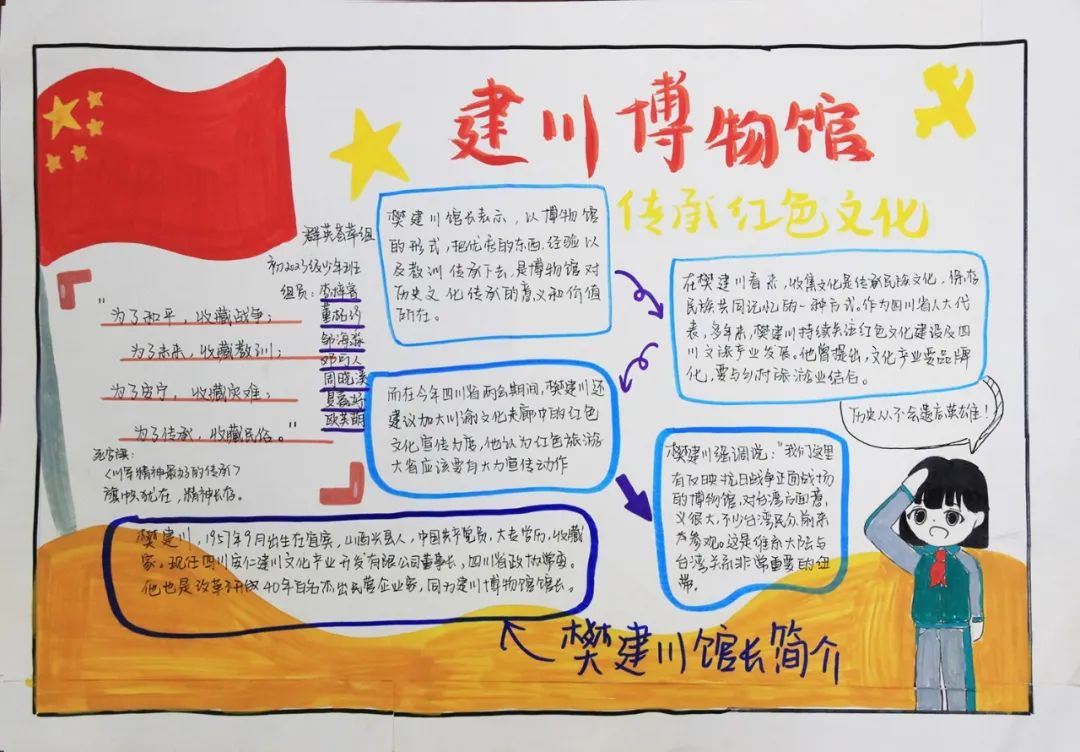 建川博物馆
传承红色文化
群英荟萃组
初2023级少年班
组员：
周晓溪
"为了和平，收藏战争；
为了未来，收藏教训；
为了安宁，收藏灾难；
为了传承，收藏民俗。"
《川军精神最好的传承》
旗帜犹在，精神长存。
樊建川馆长表示，以博物馆
的形式，把优秀的东西、经验以
及教训传承下去，是博物馆对
历史文化传承的意义和价值
所在。
在樊建川看来，收集文化是传承民族文化，保存
民族共同记忆的一种方式。作为四川省人大代
表，多年来，樊建川持续关注红色文化建设及四
川文旅产业发展。他曾提出，文化产业要品牌
化，要与乡村旅游业结合。
而在今年四川省两会期间，樊建川还
建议加大川渝文化走廊中的红色
文化宣传力度，他认为红色旅游
大省应该要有大力宣传动作
樊建川强调说："我们这里
有反映抗日战争正面战场
的博物馆，对台湾方面意
义很大，不少台湾民众前来
参观。这是维系大陆与
台湾关系非常重要的纽
带。
历史从不会遗忘英雄！
樊建川，1957年9月出生在宜宾，山西兴县人，中国共产党员，大专学历，收藏
家。现任四川安仁建川文化产业开发有限公司董事长，四川省政协常委。
他也是改革开放40年百名杰出民营企业家，同为建川博物馆馆长。
樊建川馆长简介